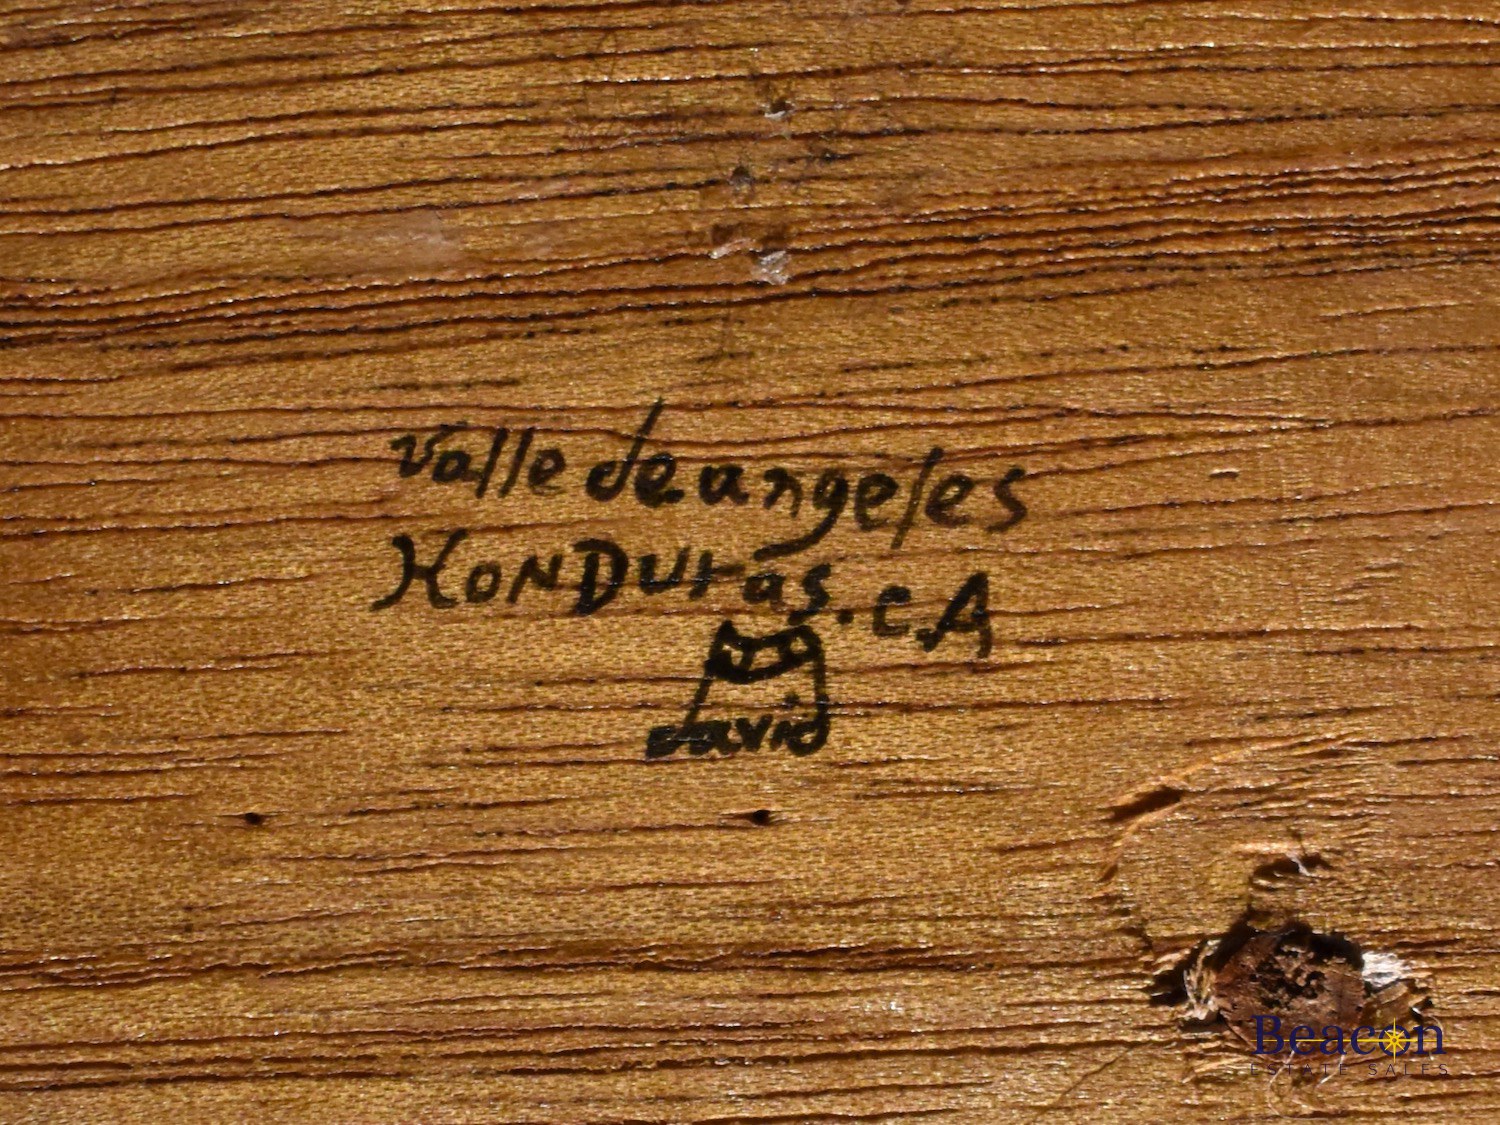 Valle de angeles
HONDUrás. C.A
david
Beacon
ESTATE SALES